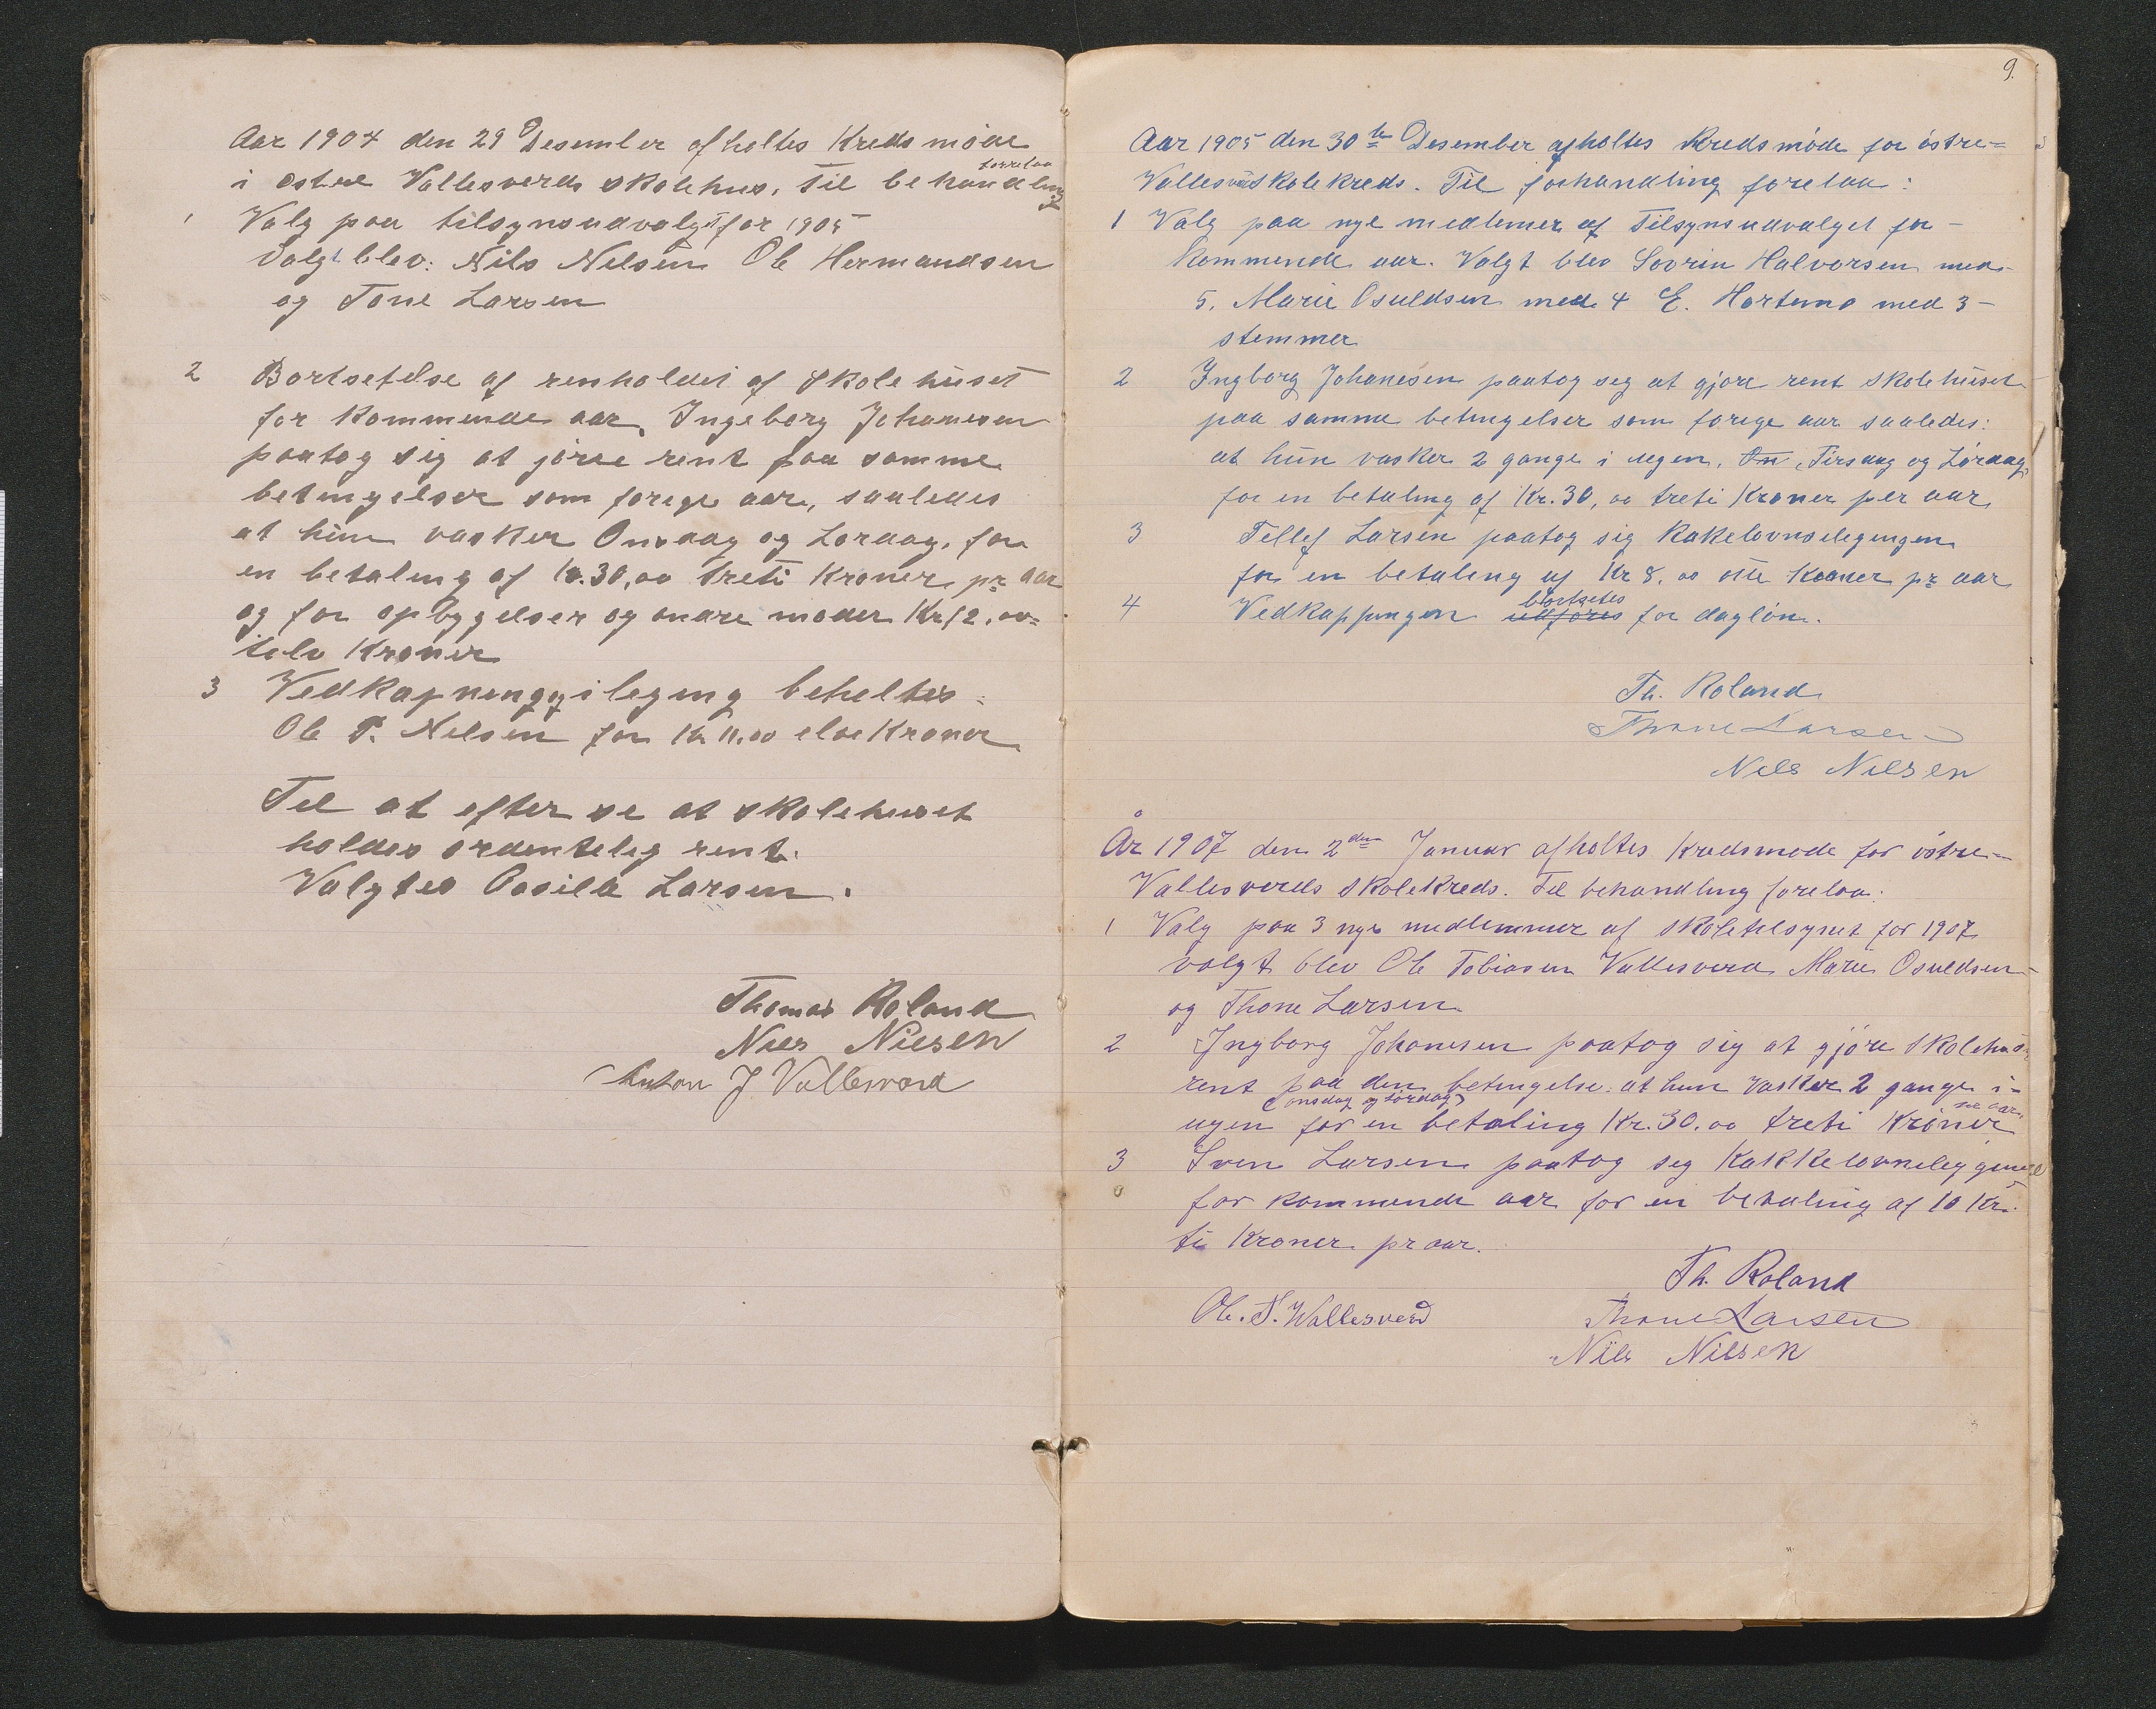 Aar 1904 den 29 Desember afholtes Kreds möde
forrelaa
i østre Vallesverds skolehus. Til behandling
1 Valg paa tilsynsudvalgt for 1905
Valgt blev: Nils Nelsen Ole Hermandsen
og Tone Larsen
2 Bortsetelse af renholdet af Skolehuset
for Kommende aar. Ingeborg Johanesen
paatog sig at jöree rent paa samme
betingelser som forige aar, saaledes
at hun vasker Onsdag og Lordag, for
en betaling af Kr. 30,00 treti Kroner pr aar
og for opbyggelser og andre moder Kr 12.00
tolv Kroner
3 Vedkapningog ileging beheltes
Ole P. Nelsen for Kr 11.00 elve Kroner
Til at efter se at skolehuset
holdes ordenteleg rent.
Valgtes Aasille Larsen.
Thomas Roland
Niels Nielsen
Anton J Vallesverd
9.
Aar 1905 den 30te Desember afholtes Kredsmöde for östre=
Vallesverd Skolekreds. Til forhandling forelaa:
1 Valg paa nye medlemer af Tilsynsudvalget for -
Kommende aar. Valgt blev Sovrin Halvorsen med
5, Marie Osuldsen med 4 E. Hortemo med 3 -
stemmer
2 Ingborg Johanesen paatog seg at gjöre rent skolehuset
paa samme betingelser som forige aar saaledes:
at hun vasker 2 gange i ugen, On Tirsdag og Lördag,
for en betaling af Kr. 30,00 treti Kroner per aar
3 Tellef Larsen paatog sig Kakelovnsilegingen
for en betaling af Kr 8.00 otte Kroner pr aar
bortsetes
4 Vedkappingen udföres for daglön.
Th. Roland
Thone Larsen
Nils Nilsen
År 1907 den 2den Januar afholtes Kredsmøde for östre
Vallesverds Skolekreds. Til behandling forelaa:
1 Valg paa 3 nye medlemmer af Skoletilsynet for 1907
valgt blev Ole Tobiasen Vallesverd Marie Osuldsen
og Thone Larsen.
2 Ingborg Johanesen paatog sig at gjöre Skolehus
rent paa den betingelse: at hun Vasker 2 gange i=
(onsdag og Lördag) pr aar
ugen for en betaling Kr. 30.00 treti Kroner
3 Sven Larsen paatog seg Kakkelovneleggingen
for kommende aar for en betaling af 10 Kr.
ti Kroner pr aar.
Th. Roland
Ole. T. Wallesverd Thone Larsen
Nils Nilsen